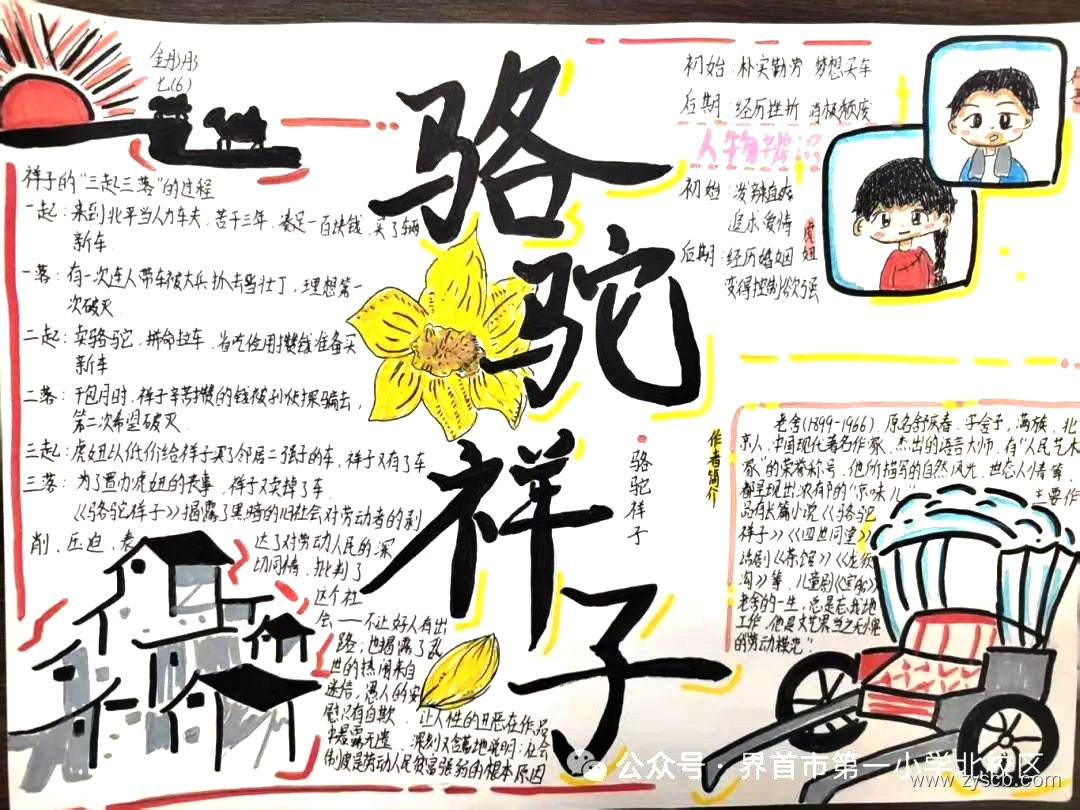 金彤彤
七(6)
骆驼祥子
祥子的“三起三落”的过程
一起：来到北平当人力车夫，苦干三年，凑足一百块钱，买了辆
新车.
一落：有一次连人带车被大兵抓去当壮丁，理想第一
次破灭.
二起：卖骆驼，拼命拉车，省吃俭用攒钱准备买
新车
二落：干包月时，祥子辛苦攒的钱被孙侦探骗去，
第二次希望破灭.
三起：虎妞以低价给祥子买了邻居二强子的车，祥子又有了车
三落：为了置办虎妞的丧事，祥子又卖掉了车.
《骆驼祥子》揭露了黑暗的旧社会对劳动者的剥
削、压迫，表
达了对劳动人民的深
切同情，批判了
这个社
会——不让好人有出
路；也揭露了
世的热闹来自
迷信，愚人的安
慰只有自欺，让人性的丑恶在作品
中暴露无遗 深刻又含蓄地说明：社会
制度是劳动人民贫富强弱的根本原因
初始：朴实勤劳 梦想买车
后期：经历挫折 消极颓废
人物辨识
初始：泼辣直爽
追求爱情
后期：经历婚姻
变得控制欲强
虎妞
骆驼祥子
作者简介
老舍(1899-1966)，原名舒庆春，字舍予，满族，北
京人，中国现代著名作家、杰出的语言大师，有“人民艺术
家”的荣誉称号，他所描写的自然风光、世态人情等，
都呈现出浓郁的“京味儿”
主要作
品有长篇小说《骆驼
祥子》《四世同堂》
话剧《茶馆》《龙须
沟》等，儿童剧《宝船》
老舍的一生，总是忘我地
工作，他是文艺界当之无愧
的劳动模范”.
公众号·界首市第一小学北校区
www.zyscb.com